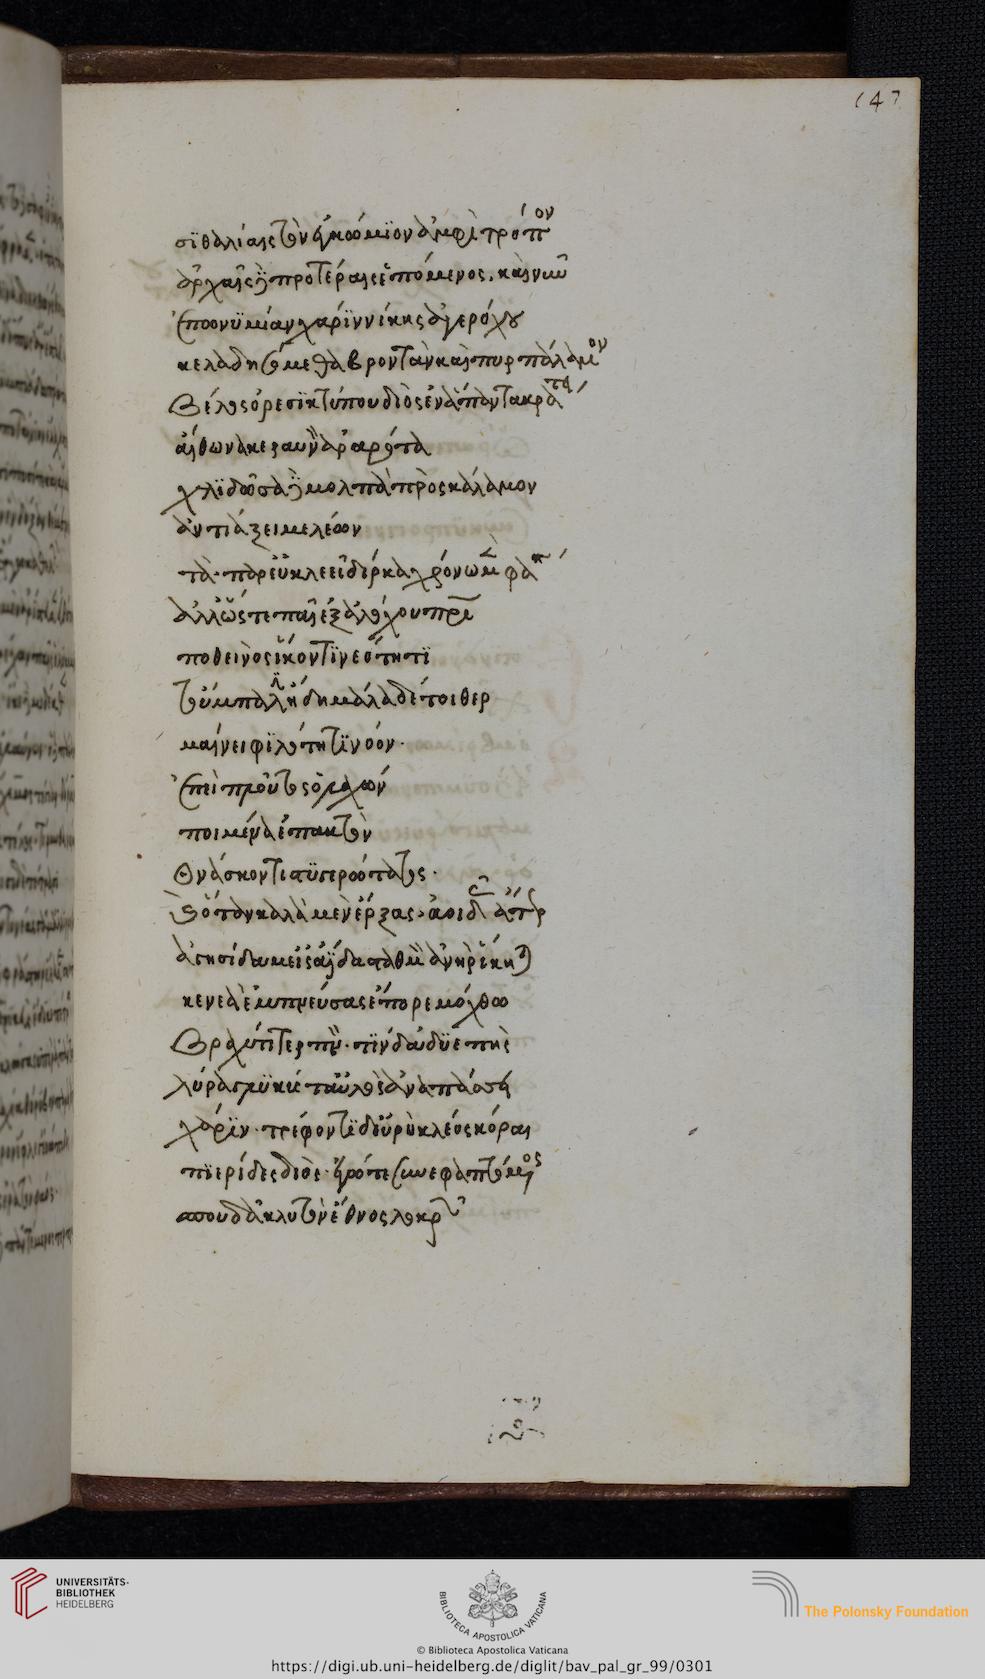 147
σϊ θαλίαις τὸν ἐγκώμϊον ἀμφὶ τρόπον
ἀρχαῖς δὲ προτέραις ἑπόμενος. καὶ νῦν
ἐπωνϋμίαν χάρϊν νίκης ἀγερώχου
κελαδησόμεθα βροντὰν καὶ πυρπάλαμον
βέλος ὀρσϊκτύπου διὸς ἐν ἅπαντι κράτει
αἴθωνα κεραυνὸν ἀραρότα
χλϊδῶσα δὲ μολπὰ πρὸς κάλαμον
ἀντιάξει μελέων
τὰ παρ εὐκλεεῖ δίρκα χρόνω μὲν φάνεν
ἀλλ ὥστε παῖς ἐξ ἀλόχου πατρὶ
ποθεινὸς ἵκοντϊ νεότητϊ
τὸ πάλιν ἤδη μάλα δέ τοι θερ
μαίνει φϊλότητϊ νόον.
ἐπεὶ πλοῦτος ὁ λαχὼν
ποιμένα ἐπακτὸν
θνάσκοντι στϋγερώτατος.
καὶ ὅταν καλὰ μὲν ἔρξας. ἀοιδᾶς ἄτερ
ἁγησίδαμ εἰς ἀΐδα σταθμὸν ἀνὴρ ἵκηται
κενεὰ ἐμπνεύσας ἔπορε μόχθω
βραχύ τι τερπνόν. τὶν δ ἁδϋεπὴς
λύρα γλϋκύς τ αὐλὸς ἀναπάσσει
χάρϊν. τρέφοντϊ δ εὐρὺ κλέος κόραι
πϊερίδες διός. ἐγώ τε συνεφαπτόμενος
σπουδᾶ κλυτὸν ἔθνος λοκρῶν
UNIVERSITÄTS-
BIBLIOTHEK
HEIDELBERG
BIBLIOTECA APOSTOLICA VATICANA
The Polonsky Foundation
© Biblioteca Apostolica Vaticana
https://digi.ub.uni-heidelberg.de/diglit/bav_pal_gr_99/0301